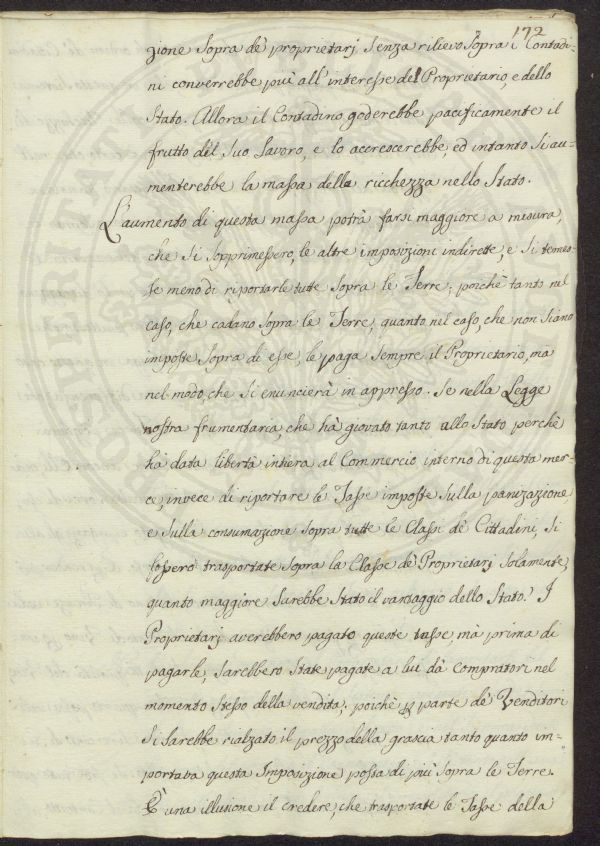 172
zione sopra de' proprietarj senza rilievo sopra i Contadi-
ni converrebbe più all'interesse del Proprietario, e dello
Stato. Allora il Contadino goderebbe pacificamente il
frutto del suo Lavoro, e lo accrescerebbe, ed intanto si au-
menterebbe la massa della ricchezza nello Stato.
L'aumento di questa massa potrà farsi maggiore a misura,
che si sopprimessero le altre imposizioni indirette, e si temes-
se meno di riportarle tutte sopra le Terre, poichè tanto nel
caso, che cadano sopra le Terre, quanto nel caso, che non siano
imposte sopra di esse, le paga sempre il Proprietario, ma
nel modo, che si enuncierà in appresso. Se nella Legge
nostra frumentaria, che hà giovato tanto allo Stato perchè
hà data libertà intiera al Commercio interno di questa mer-
ce, invece di riportare le Tasse imposte sulla panizazione
e sulla consumazione sopra tutte le Classi de' Cittadini, si
fossero trasportate sopra la Classe de' Proprietarj solamente,
quanto maggiore sarebbe stato il vantaggio dello Stato. I
Proprietarj averebbero pagato queste tasse, mà prima di
pagarle, sarebbero state pagate a lui dà Compratori nel
momento stesso della vendita; poichè p parte de' Venditori
si sarebbe rialzato il prezzo della grascia tanto quanto im-
portava questa Imposizione possa di più sopra le Terre.
È una illusione il credere, che trasportate le Tasse della